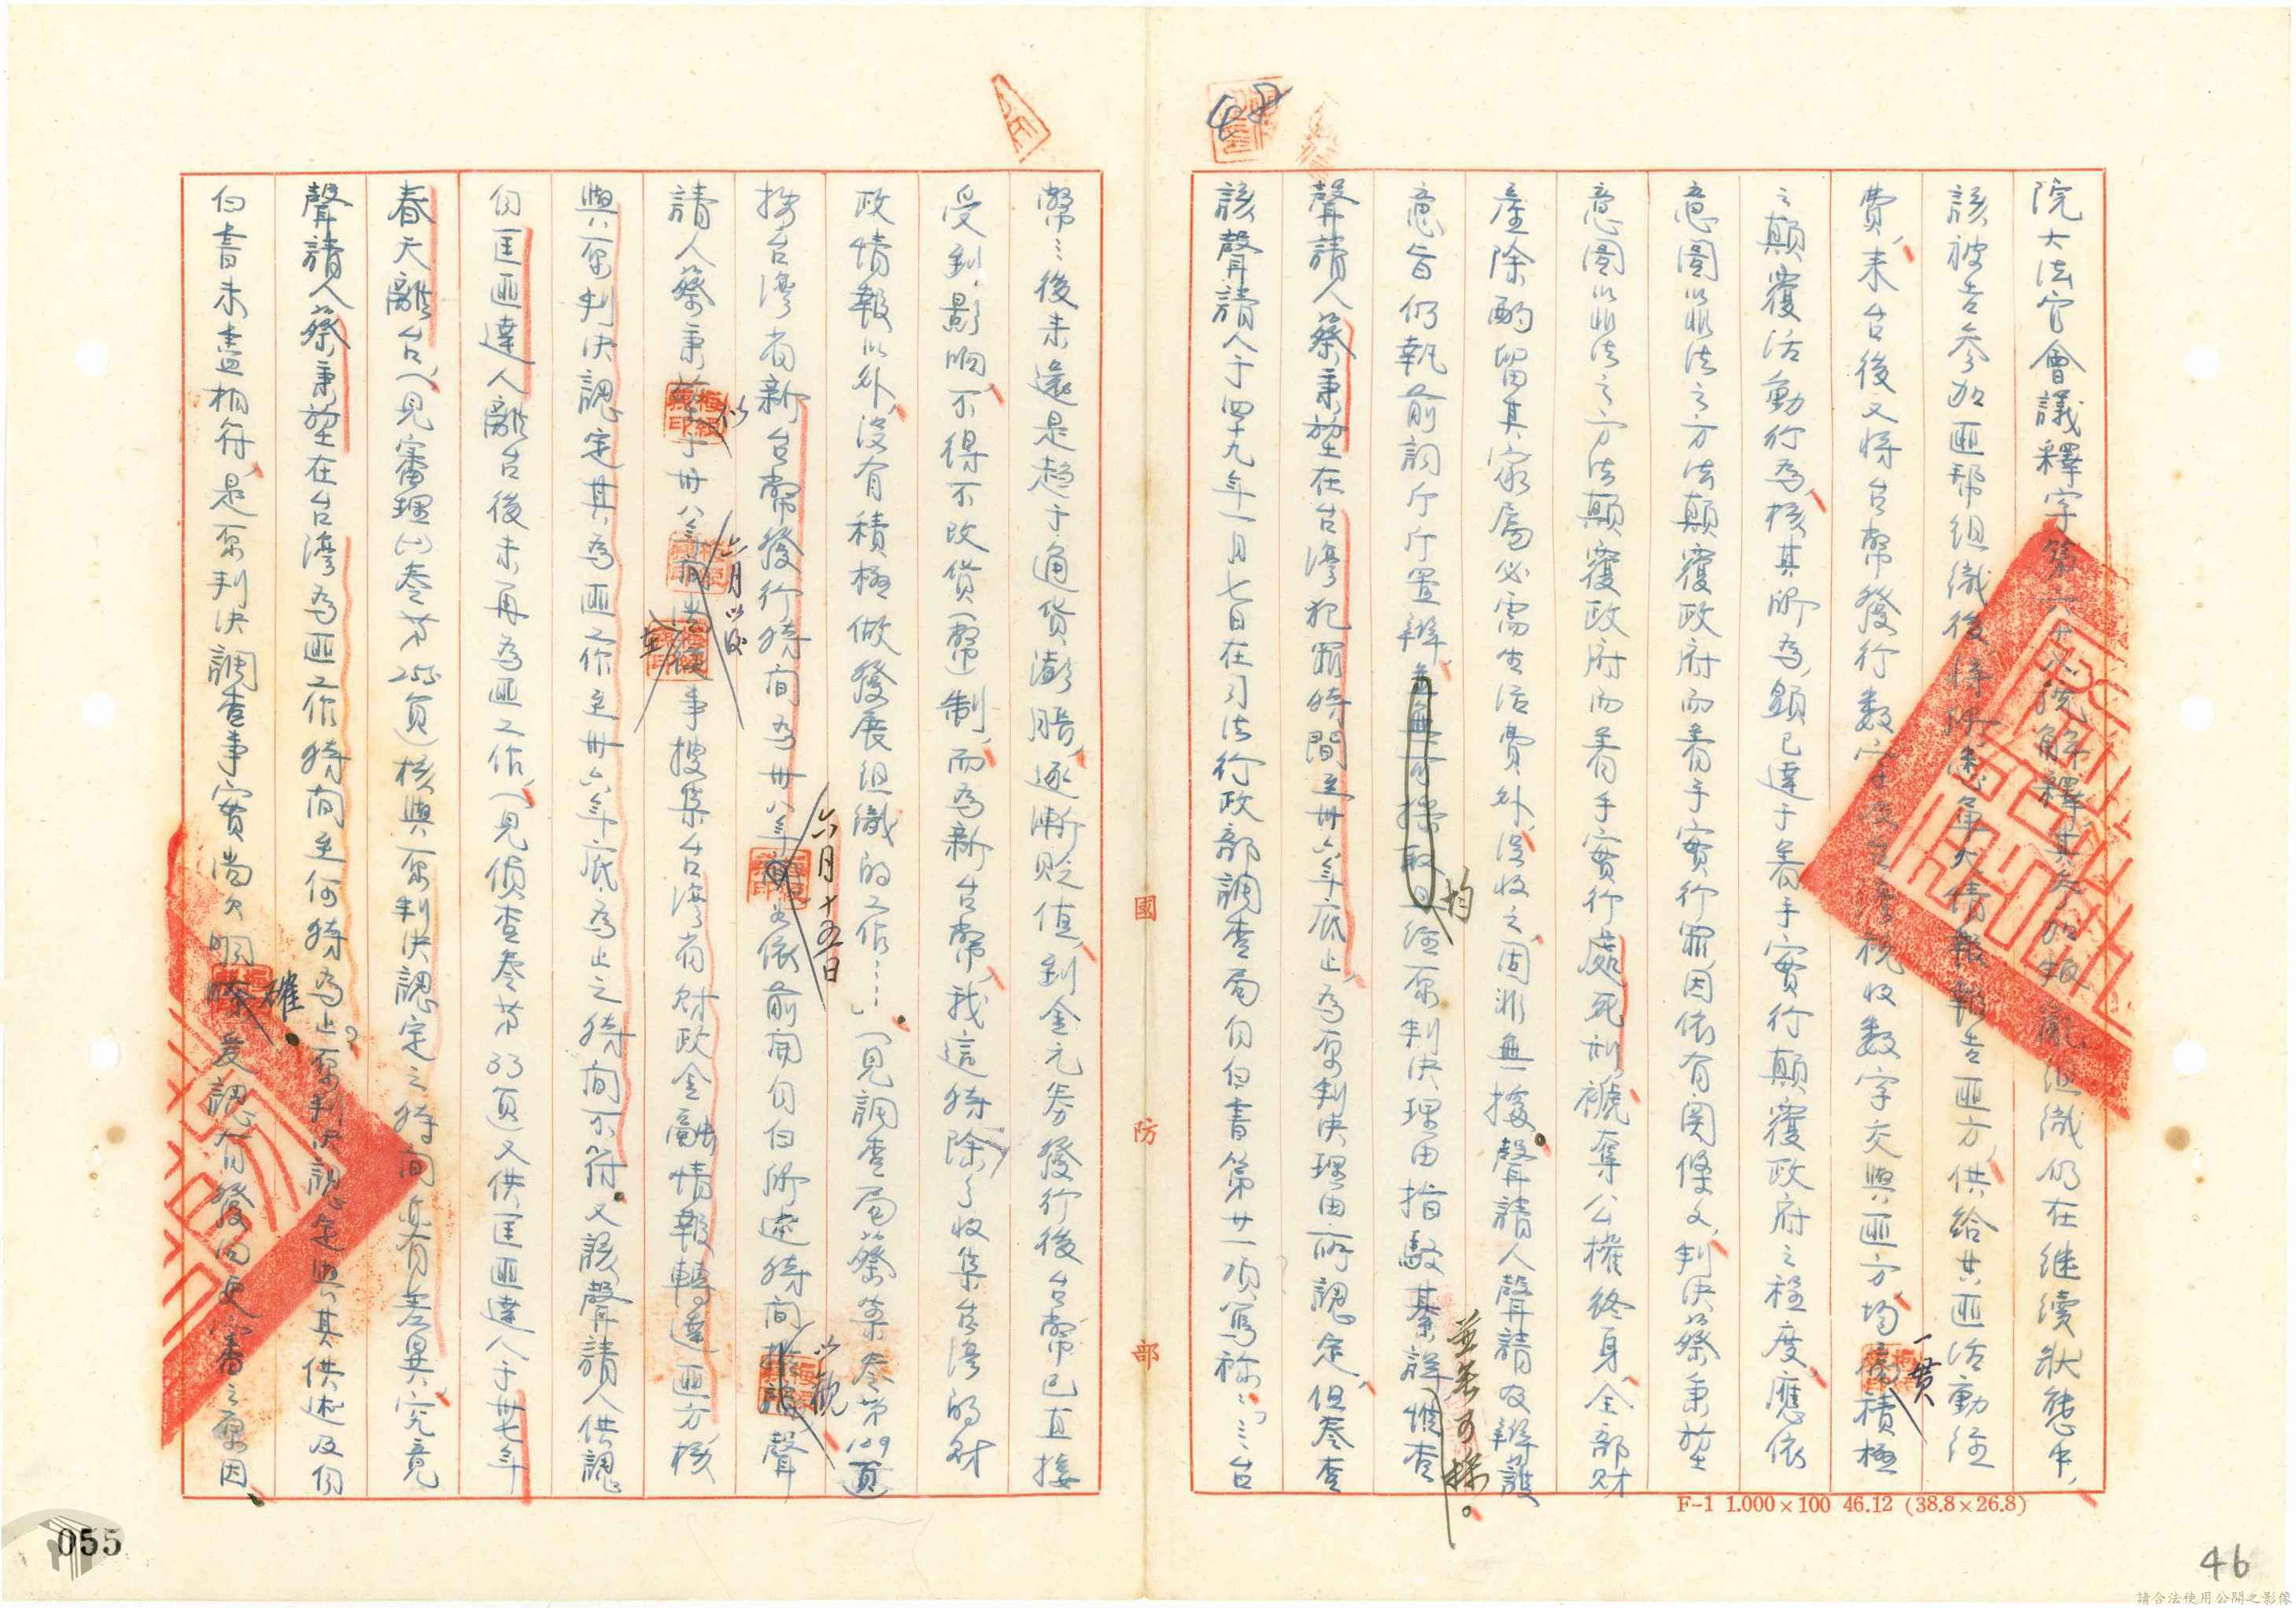 院大法官會議釋字第六十八號解釋其參加叛亂組織仍在继續狀態中，
該被告參加匪幫組織後，將所悉軍火情報報告匪方，供給共匪活動經
費，来台後又將台幣發行數字及台灣稅收數字交與匪方，均一貫積極
之顛覆活動行為，核其所為，顯已達于着手實行顛覆政府之程度，應依
意圖以非法之方法顛覆政府而着手實行罪，因依有関條文，判決蔡秉堃
意圖以非法之方法顛覆政府而着手實行處死刑，褫奪公權終身，全部財
產除酌留其家屬必需生活費外，沒收之，固非無據。聲請人聲請及辯護
意旨仍執前詞斤斤置辯，均經原判決理由指駁綦詳，並無可採。惟查
聲請人蔡秉堃在台灣犯罪時間至卅六年底止，為原判決理由所認定，但卷查
該聲請人于四十九年一月七日在司法行政部調查局自白書第廿一項寫称：「⋯台
幣⋯後来還是趋于通貨澎脹，逐漸贬值，到金元券發行後台幣已直接
受到影响，不得不改货（幣）制，而為新台幣，我這時除了收集台湾的財
政情報以外，沒有積極做發展組織的工作⋯⋯」（見調查局蔡案卷第109頁）
按台灣省新台幣發行時間為卅八年六月十五日，如依前開自白所述時間以觀，聲
請人蔡秉堃似于卅八年六月以後並在事搜集台灣省財政金融情報轉達匪方，核
與原判決認定其為匪工作至卅六年底為止之時間不符。又該聲請人供認
自匡匪達人離台後未再為匪工作，（見偵查卷第33頁）又供匡匪達人于卅七年
春天離台，（見審理(一)卷第255頁）核與原判決認定之時間亦有差異，究竟
聲請人蔡秉堃在台灣為匪工作時間至何時為止？原判決認定與其供述及自
白書未盡相符，是原判決調查事實尚欠明確。爰認有發回更審之原因。
國防部
F-1 1.000×100 46.12 (38.8×26.8)
055
46
請合法使用公開之影像